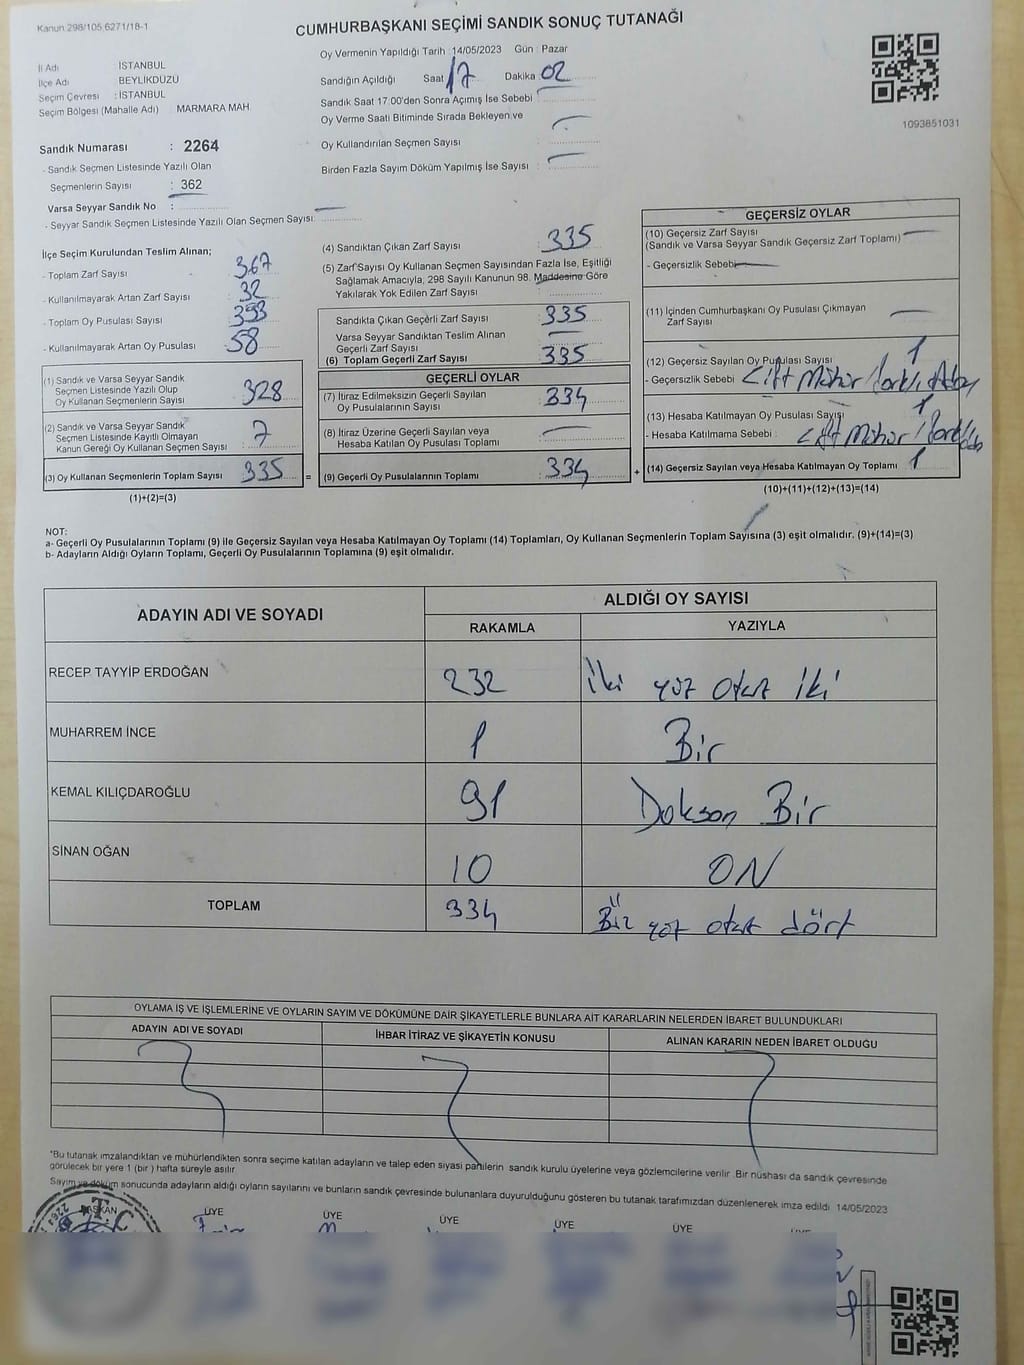 Kanun 298/105 6271/18-1
CUMHURBAŞKANI SEÇİMİ SANDIK SONUÇ TUTANAĞI
İl Adı İSTANBUL
İlçe Adı BEYLİKDÜZÜ
Seçim Çevresi : İSTANBUL
Seçim Bölgesi (Mahalle Adı) : MARMARA MAH.
Oy Vermenin Yapıldığı Tarih : 14/05/2023 Gün : Pazar
Sandığın Açıldığı Saat 17 Dakika 02
Sandık Saat 17:00'den Sonra Açımış İse Sebebi :
Oy Verme Saati Bitiminde Sırada Bekleyen ve
Oy Kullandırılan Seçmen Sayısı :
Birden Fazla Sayım Döküm Yapılmış İse Sayısı :
1093851031
Sandık Numarası : 2264
- Sandık Seçmen Listesinde Yazılı Olan
Seçmenlerin Sayısı : 362
Varsa Seyyar Sandık No :
- Seyyar Sandık Seçmen Listesinde Yazılı Olan Seçmen Sayısı:
İlçe Seçim Kurulundan Teslim Alınan;
- Toplam Zarf Sayısı 367
- Kullanılmayarak Artan Zarf Sayısı 32
- Toplam Oy Pusulası Sayısı 393
- Kullanılmayarak Artan Oy Pusulası 58
(1) Sandık ve Varsa Seyyar Sandık
Seçmen Listesinde Yazılı Olup
Oy Kullanan Seçmenlerin Sayısı 328
(2) Sandık ve Varsa Seyyar Sandık
Seçmen Listesinde Kayıtlı Olmayan
Kanun Gereği Oy Kullanan Seçmen Sayısı 7
(3) Oy Kullanan Seçmenlerin Toplam Sayısı 335 =
(1)+(2)=(3)
(4) Sandıktan Çıkan Zarf Sayısı : 335
(5) Zarf Sayısı Oy Kullanan Seçmen Sayısından Fazla İse, Eşitliği
Sağlamak Amacıyla, 298 Sayılı Kanunun 98. Maddesine Göre
Yakılarak Yok Edilen Zarf Sayısı :
Sandıkta Çıkan Geçerli Zarf Sayısı : 335
Varsa Seyyar Sandıktan Teslim Alınan
Geçerli Zarf Sayısı
(6) Toplam Geçerli Zarf Sayısı : 335
GEÇERLİ OYLAR
(7) İtiraz Edilmeksizin Geçerli Sayılan
Oy Pusulalarının Sayısı : 334
(8) İtiraz Üzerine Geçerli Sayılan veya
Hesaba Katılan Oy Pusulası Toplamı :
(9) Geçerli Oy Pusulalarının Toplamı : 334 +
GEÇERSİZ OYLAR
(10) Geçersiz Zarf Sayısı
(Sandık ve Varsa Seyyar Sandık Geçersiz Zarf Toplamı)
- Geçersizlik Sebebi
(11) İçinden Cumhurbaşkanı Oy Pusulası Çıkmayan
Zarf Sayısı
(12) Geçersiz Sayılan Oy Pusulası Sayısı 1
- Geçersizlik Sebebi Çift Mühür/farklı Aday
(13) Hesaba Katılmayan Oy Pusulası Sayısı 1
- Hesaba Katılmama Sebebi : Çift Mühür
(14) Geçersiz Sayılan veya Hesaba Katılmayan Oy Toplamı 1
(10)+(11)+(12)+(13)=(14)
NOT:
a- Geçerli Oy Pusulalarının Toplamı (9) ile Geçersiz Sayılan veya Hesaba Katılmayan Oy Toplamı (14) Toplamları, Oy Kullanan Seçmenlerin Toplam Sayısına (3) eşit olmalıdır. (9)+(14)=(3)
b- Adayların Aldığı Oyların Toplamı, Geçerli Oy Pusulalarının Toplamına (9) eşit olmalıdır.
ADAYIN ADI VE SOYADI ALDIĞI OY SAYISI
RAKAMLA YAZIYLA
RECEP TAYYİP ERDOĞAN 232 İki yüz otuz iki
MUHARREM İNCE 1 Bir
KEMAL KILIÇDAROĞLU 91 Doksan Bir
SİNAN OĞAN 10 ON
TOPLAM 334 Üç yüz otuz dört
OYLAMA İŞ VE İŞLEMLERİNE VE OYLARIN SAYIM VE DÖKÜMÜNE DAİR ŞİKAYETLERLE BUNLARA AİT KARARLARIN NELERDEN İBARET BULUNDUKLARI
ADAYIN ADI VE SOYADI İHBAR İTİRAZ VE ŞİKAYETİN KONUSU ALINAN KARARIN NEDEN İBARET OLDUĞU
*Bu tutanak imzalandıktan ve mühürlendikten sonra seçime katılan adayların ve talep eden siyasi partilerin sandık kurulu üyelerine veya gözlemcilerine verilir. Bir nüshası da sandık çevresinde
görülecek bir yere 1 (bir) hafta süreyle asılır.
Sayım ve döküm sonucunda adayların aldığı oyların sayılarını ve bunların sandık çevresinde bulunanlara duyurulduğunu gösteren bu tutanak tarafımızdan düzenlenerek imza edildi 14/05/2023
BAŞKAN ÜYE ÜYE ÜYE ÜYE ÜYE
T.C.